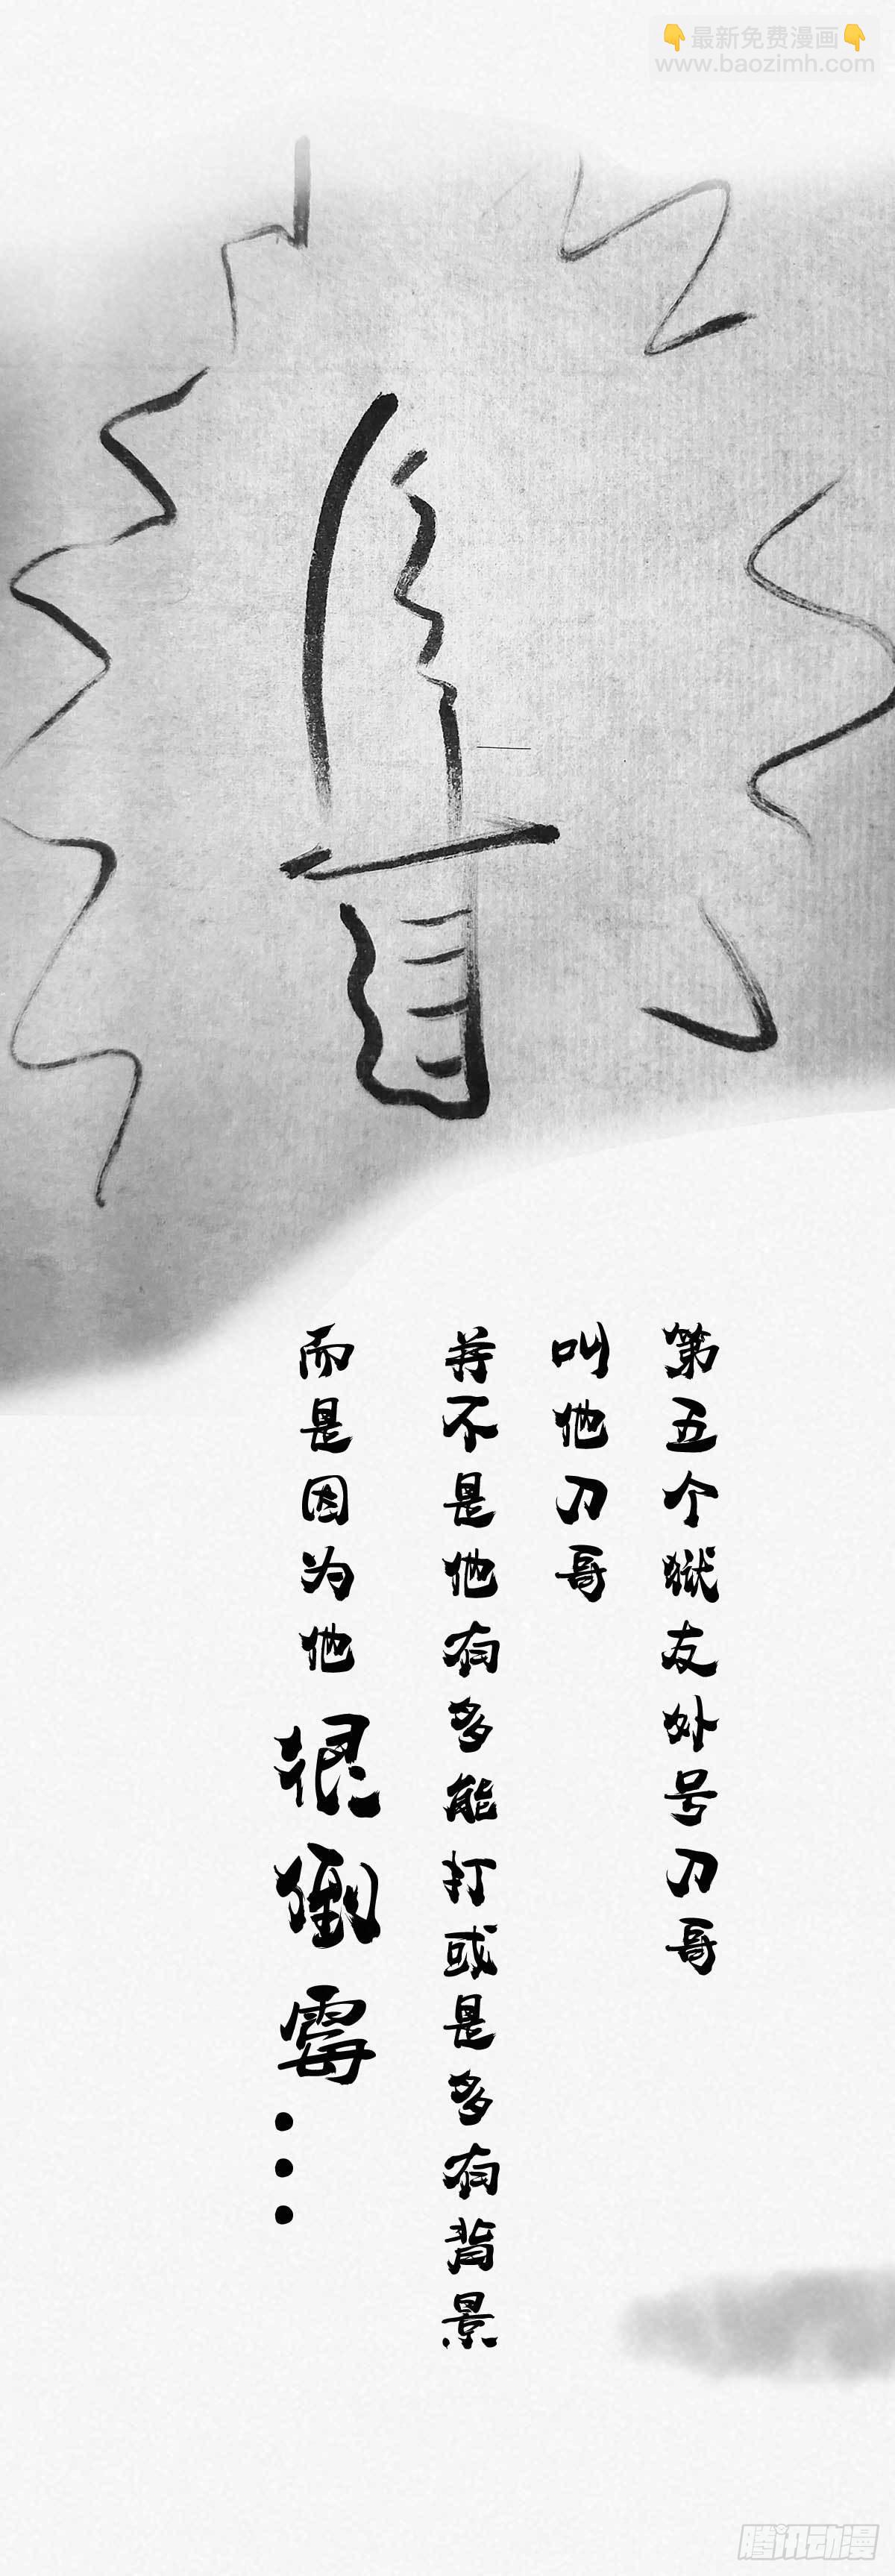 👇最新免费漫画👇
www.baozimh.com
第五个狱友外号刀哥
叫他刀哥
并不是他有多能打或是多有背景
而是因为他很倒霉...
腾讯动漫